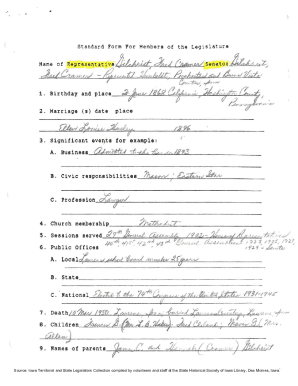 Standard Form For Members of the Legislature
Name of Representative Gilchrist, Fred Cramer Senator Gilchrist,
Fred Cramer - Represented Humboldt, Pocahontas and Buena Vista
Counties, Iowa
1. Birthday and place 2 June 1868 California, Washington County,
Pennsylvania
2. Marriage (s) date place
1896
3. Significant events for example:
A. Business Admitted to the bar 1893
B. Civic responsibilities Mason; Eastern Star
C. Profession Lawyer
4. Church membership Methodist
5. Sessions served 29th General Assembly 1902 -
40th 41st 42nd 43rd General Assemblies 1923, 1925, 1927,
1929 - Senate
6. Public Offices
A. Local Laurens school board member 25 years
B. State
C. National Elected to the 74th Congress of the United States 1931-1945
7. Death 10 Mar 1950 Laurens, Iowa buried Laurens
8. Children
9. Names of parents John C. and Hannah (Cramer) Gilchrist
Source: Iowa Territorial and State Legislators Collection compiled by volunteers and staff at the State Historical Society of Iowa Library, Des Moines, Iowa.